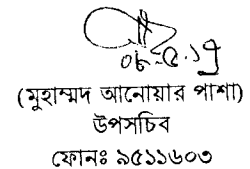 ০৮.৫.১৭
(মুহাম্মদ আনোয়ার পাশা)
উপসচিব
ফোনঃ ৯৫১১৬০৩